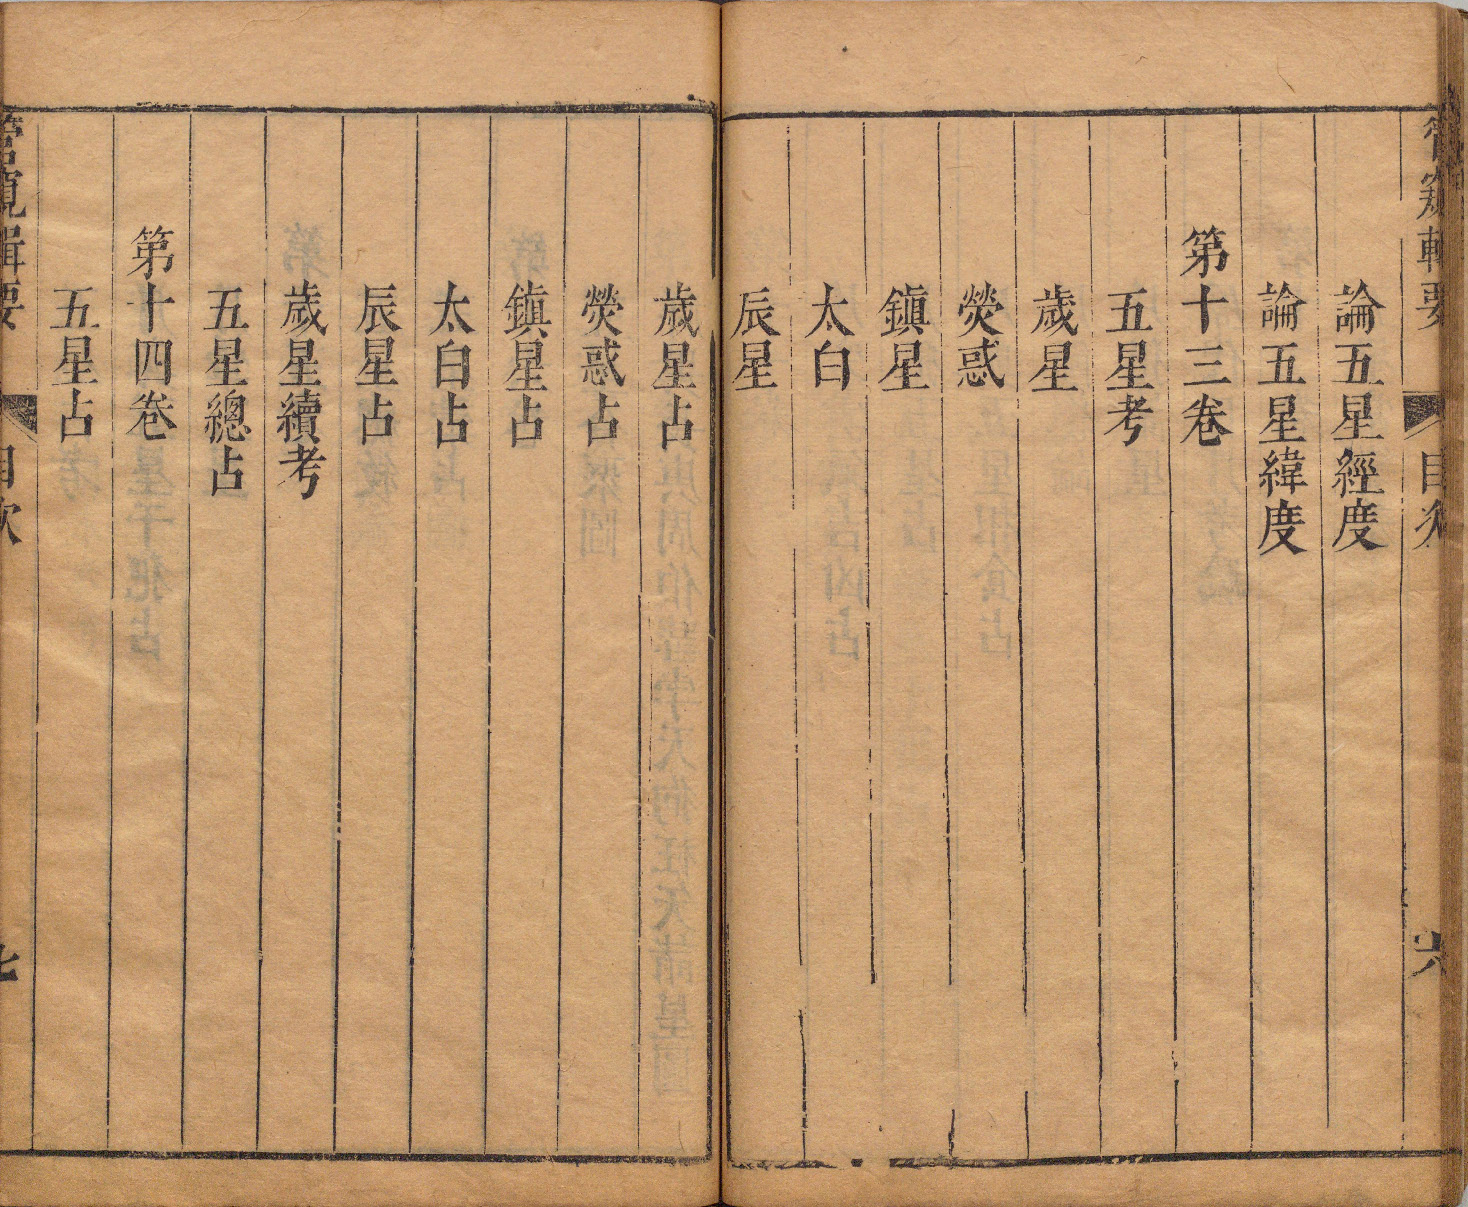 管窺輯要 目次 六
論五星經度
論五星緯度
第十三卷
五星考
歲星
熒惑
鎮星
太白
辰星
歲星占
熒惑占
鎮星占
太白占
辰星占
歲星續考
五星總占
第十四卷
五星占
管窺輯要 目次 七